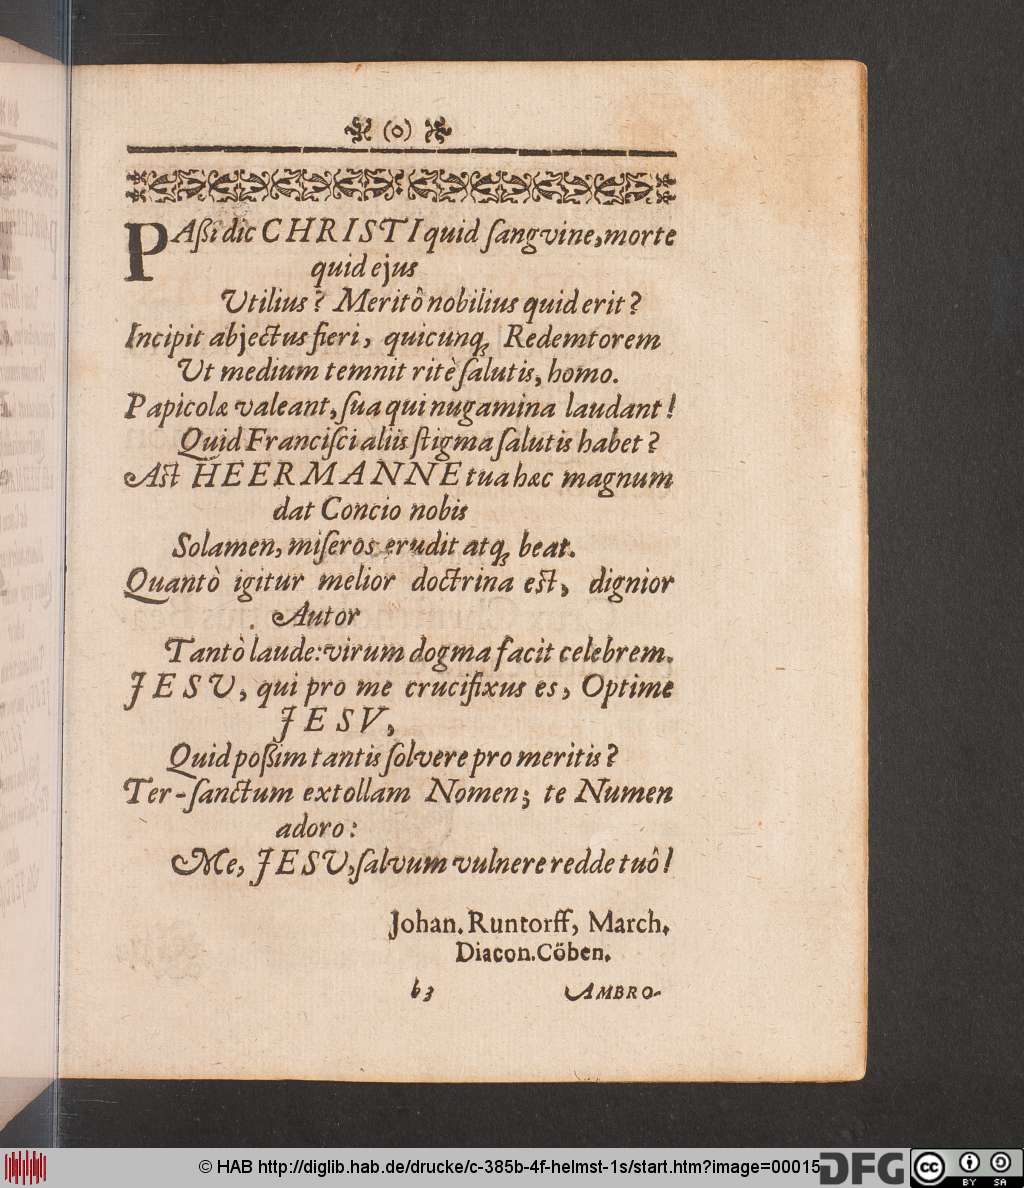 (o)
PAßi dic CHRISTI quid ſangvine, morte
quid ejus
Utilius? Meritô nobilius quid erit?
Incipit abjectus fieri, quicunq; Redemtorem
Ut medium temnit ritè ſalutis, homo.
Papicolæ valeant, ſua qui nugamina laudant!
Quid Franciſci aliis ſtigma ſalutis habet?
Aſt HEERMANNE tua hæc magnum
dat Concio nobis
Solamen, miſeros erudit atq; beat.
Quantò igitur melior doctrina eſt, dignior
Autor
Tantò laude: virum dogma facit celebrem.
JESU, qui pro me crucifixus es, Optime
JESV,
Quid poßim tantis ſolvere pro meritis?
Ter-ſanctum extollam Nomen; te Numen
adoro:
Me, JESU, ſalvum vulnere redde tuô!
Johan. Runtorff, March.
Diacon. Cöben.
b3 AMBRO-
© HAB http://diglib.hab.de/drucke/c-385b-4f-helmst-1s/start.htm?image=00015
DFG
cc BY SA